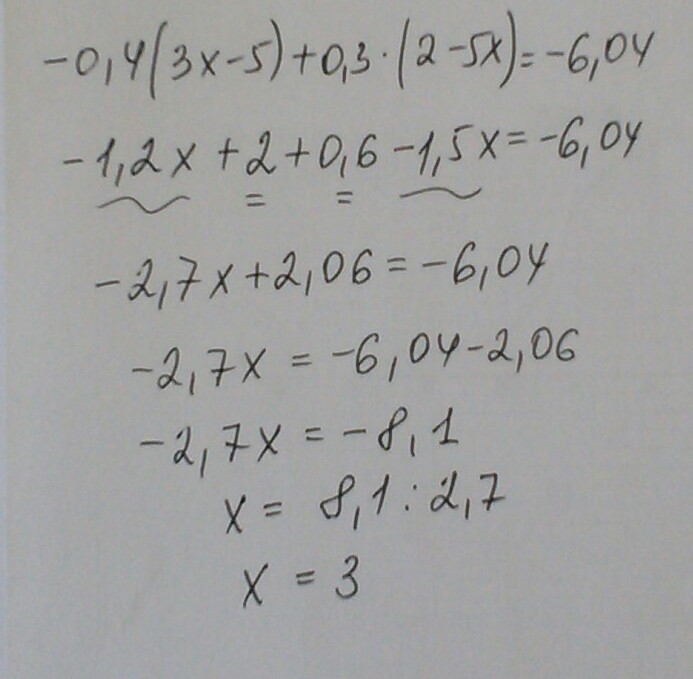 -0,4(3x-5)+0,3·(2-5x)=-6,04
-1,2x+2+0,6-1,5x=-6,04
-2,7x+2,06=-6,04
-2,7x=-6,04-2,06
-2,7x=-8,1
x=8,1:2,7
x=3